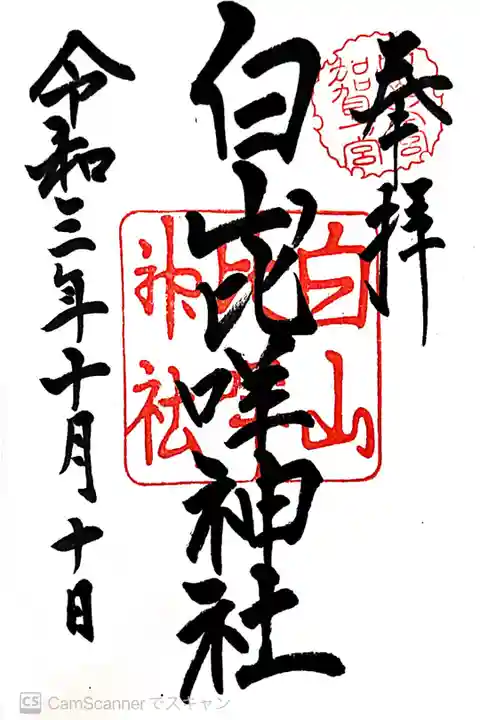 奉拝
加賀一宮
白山比咩神社
白山比咩神社
令和三年十月十日
CS CamScannerでスキャン